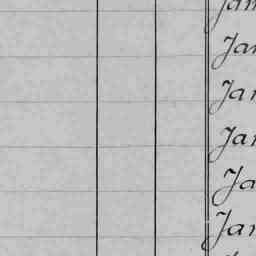 Jan
Jan
Jan
Jan
Ja
Jan